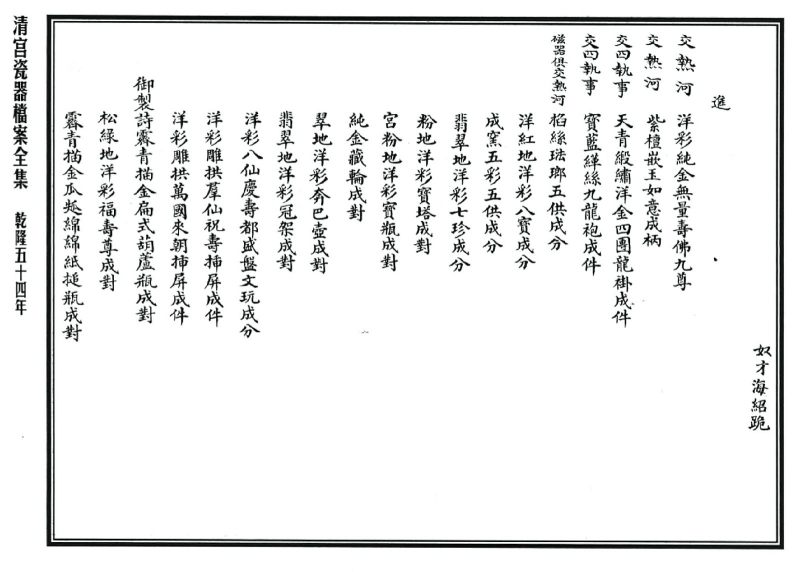 奴才海紹跪
進
交熱河 洋彩純金無量壽佛九尊
交熱河 紫檀嵌玉如意成柄
交四執事 天青緞繡洋金四團龍褂成件
交四執事 寶藍緙絲九龍袍成件
磁器俱交熱河 掐絲琺瑯五供成分
洋紅地洋彩八寶成分
成窯五彩五供成分
翡翠地洋彩七珍成分
粉地洋彩寶塔成對
宮粉地洋彩寶瓶成對
純金藏輪成對
翠地洋彩奔巴壺成對
翡翠地洋彩冠架成對
洋彩八仙慶壽都盛盤文玩成分
洋彩雕拱羣仙祝壽揷屏成件
洋彩雕拱萬國來朝揷屏成件
御製詩霽青描金扁式葫蘆瓶成對
松綠地洋彩福壽尊成對
霽青描金瓜瓞綿綿紙搥瓶成對
清宮瓷器檔案全集 乾隆五十四年